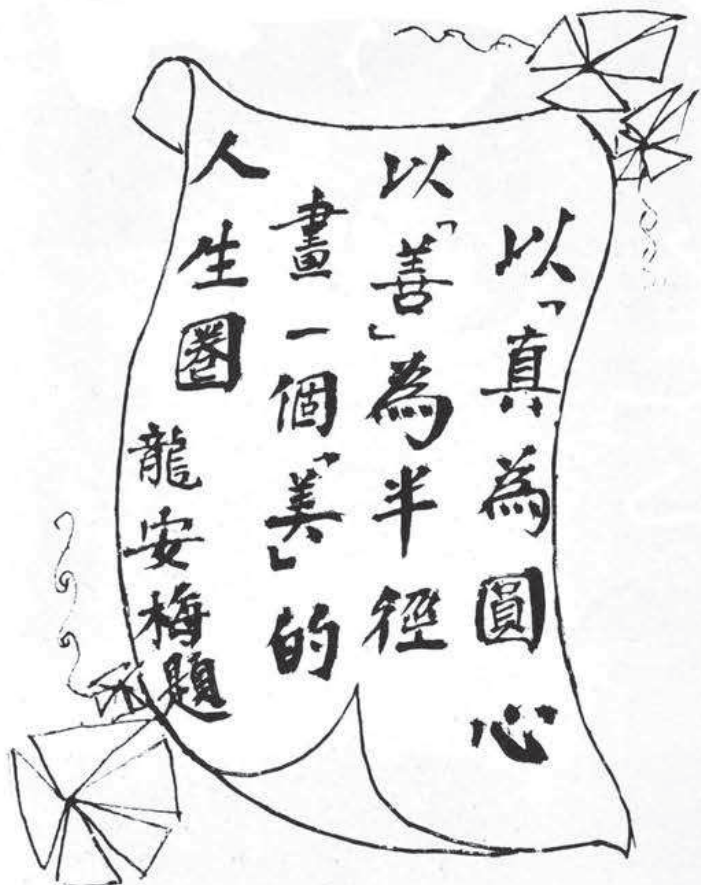 以「真為圓心
以「善」為半徑
畫一個「美」的
人生圈
龍安梅題